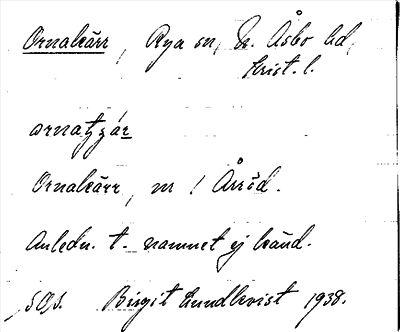 Ornakärr, Rya sn, N. Åsbo hd,
Krist. l.
Ornakärr, m ! Årröd.
Anledn. t. namnet ej känd.
Birgit Lundkvist 1938.